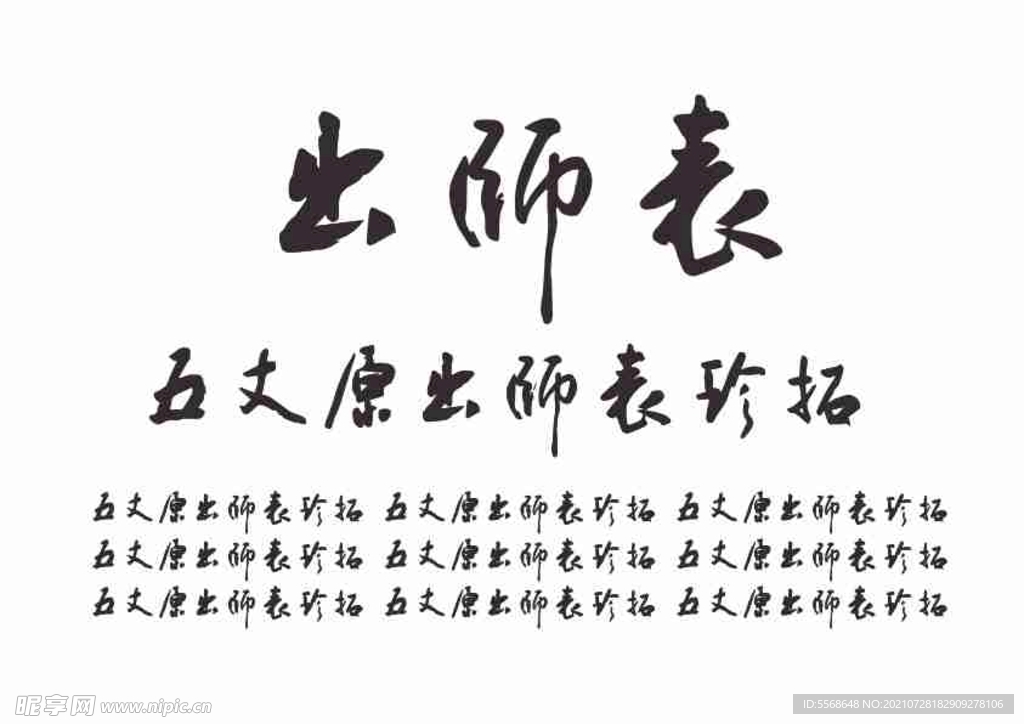 出師表
五丈原出師表珍拓
五丈原出師表珍拓 五丈原出師表珍拓 五丈原出師表珍拓
五丈原出師表珍拓 五丈原出師表珍拓 五丈原出師表珍拓
五丈原出師表珍拓 五丈原出師表珍拓 五丈原出師表珍拓
昵享网 www.nipic.cn
ID:5568648 NO:20210728182909278106